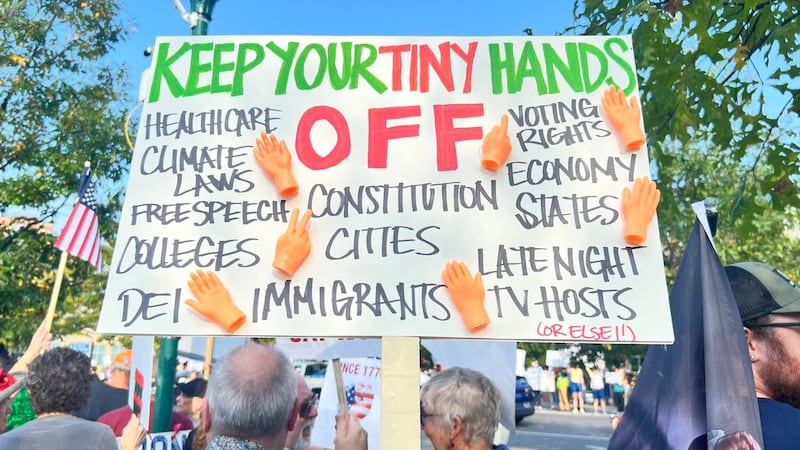 KEEP YOUR TINY HANDS
OFF
HEALTHCARE
CLIMATE
LAWS
FREE SPEECH
COLLEGES
DEI
CONSTITUTION
CITIES
IMMIGRANTS
VOTING
RIGHTS
ECONOMY
STATES
LATE NIGHT
TV HOSTS
(OR ELSE!!)
INCE 177